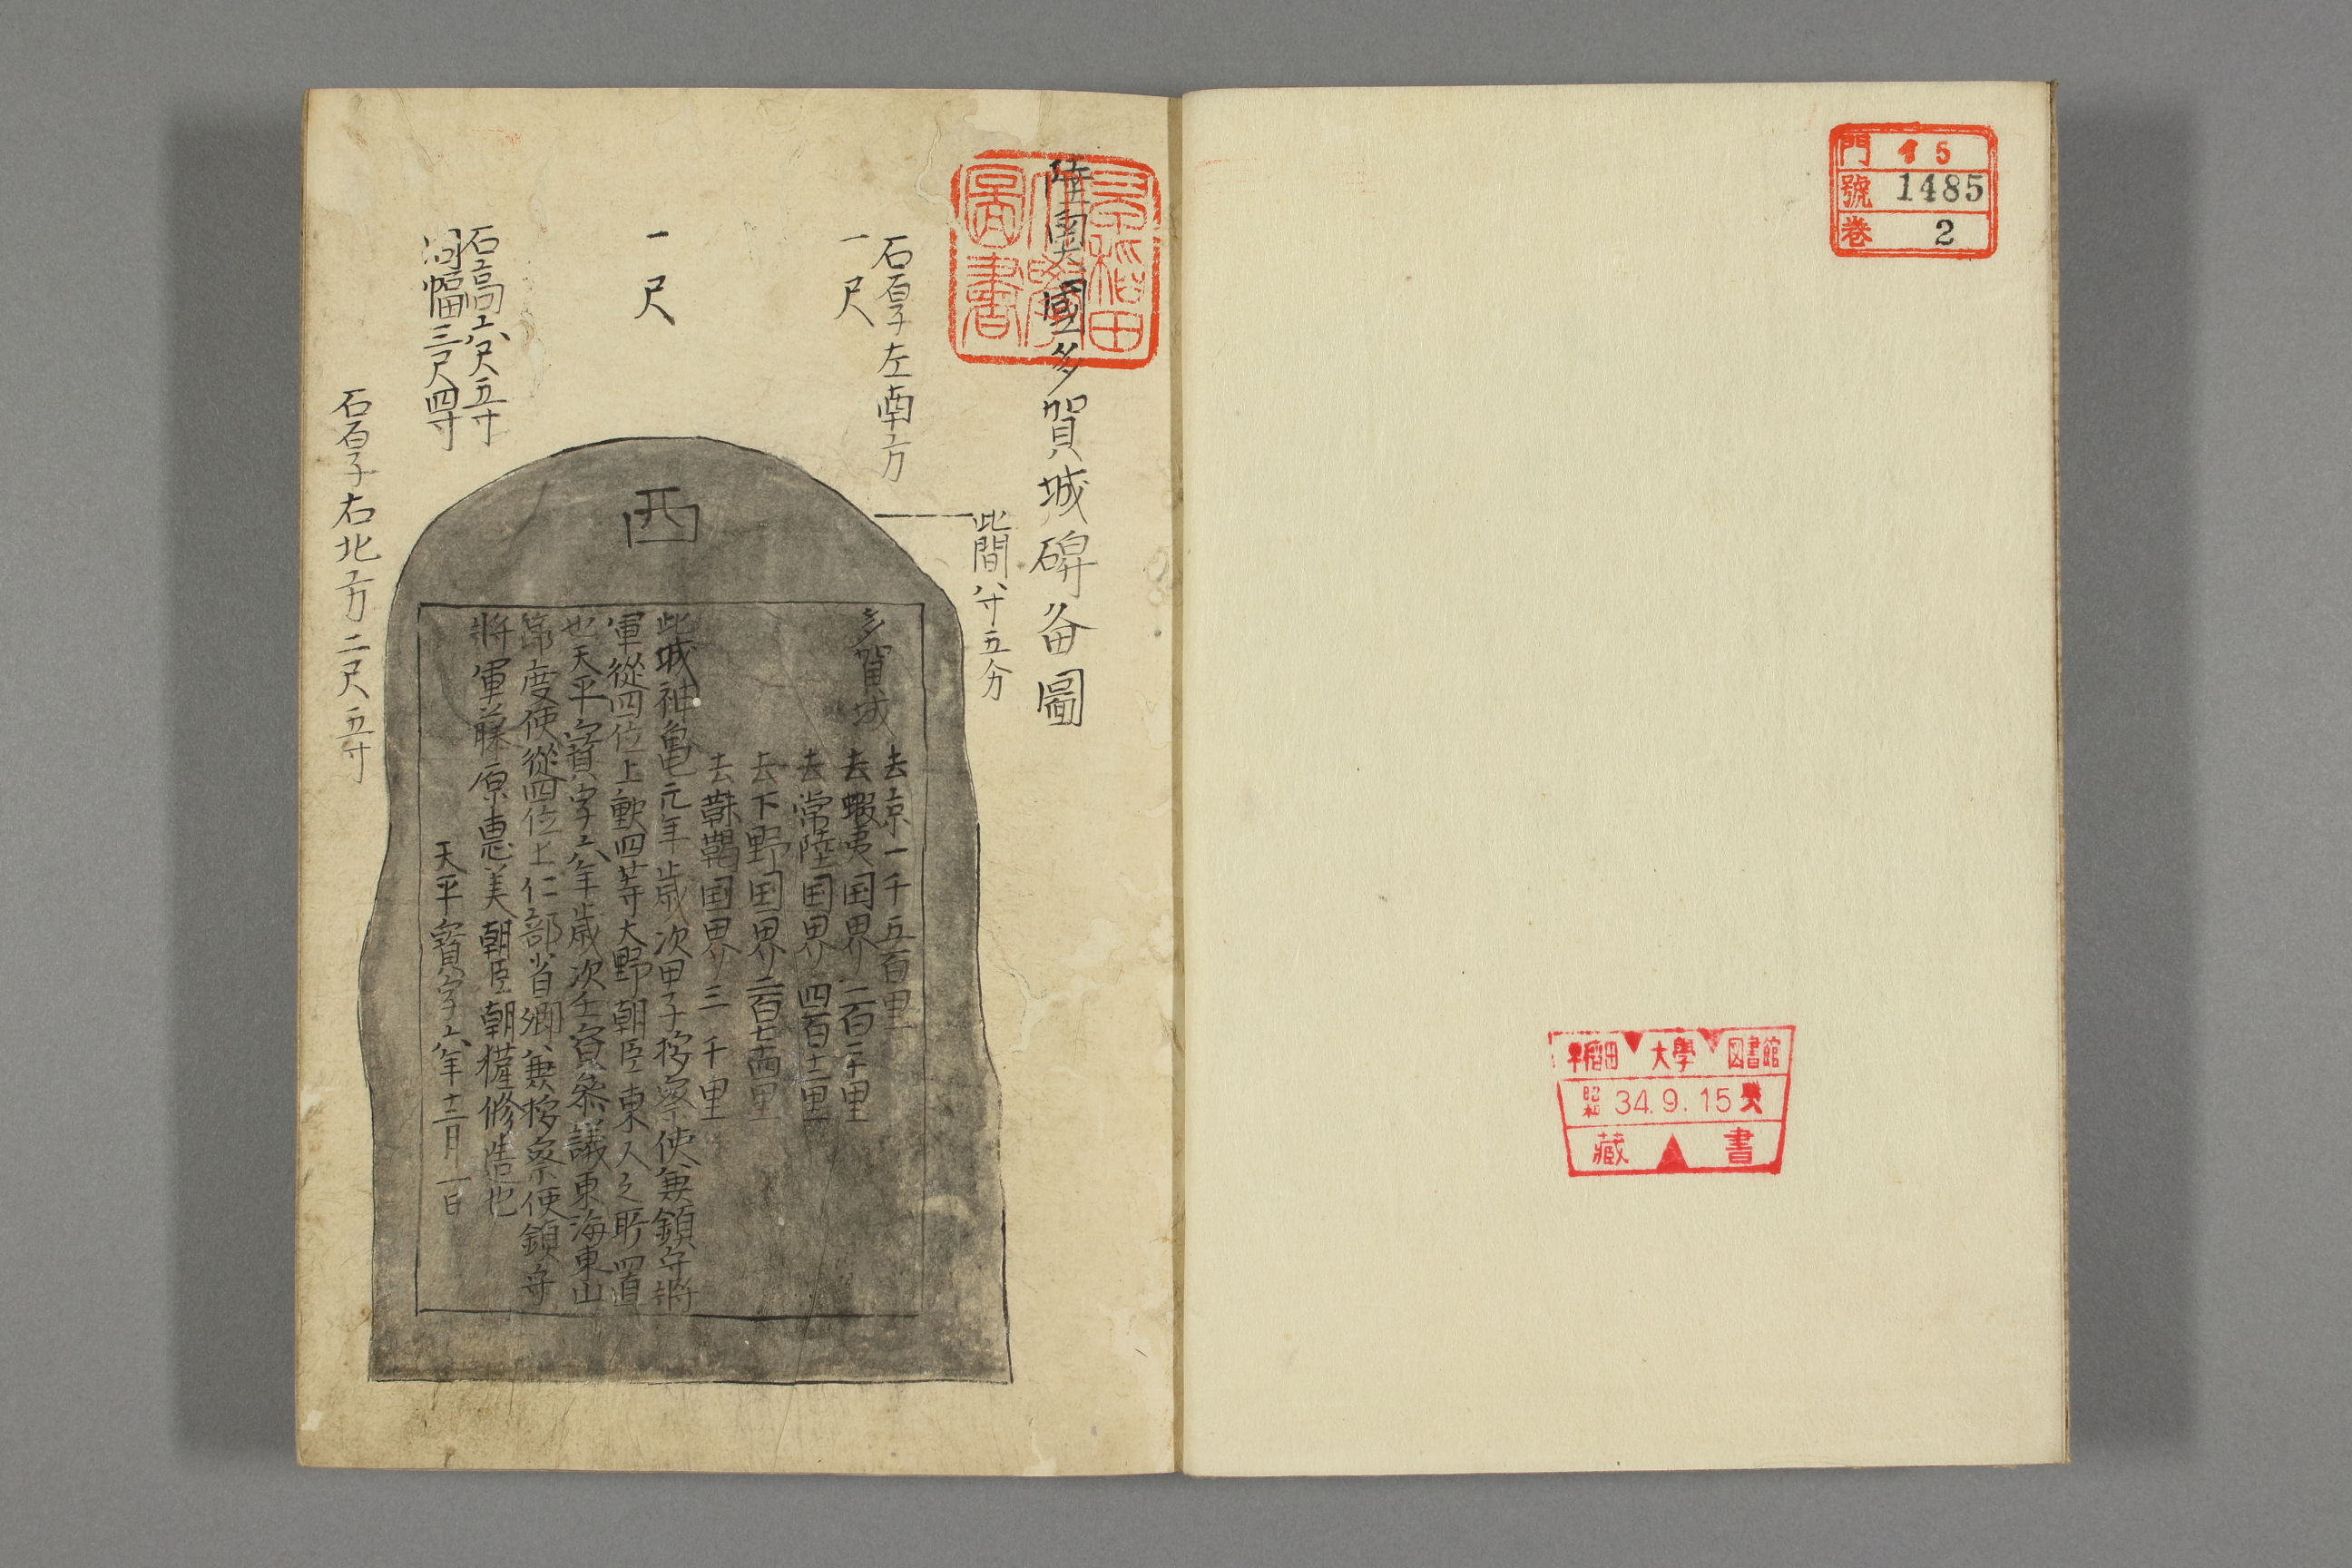 門 イ5
號 1485
卷 2
早稲田 大學 図書館
昭和 34.9.15
藏 書
早稲田大學圖書
陸奧國多賀城碑畓圖
此間八寸五分
石厚左南方
一尺
一尺
石高六尺五寸
同幅三尺四寸
石厚右北方二尺五寸
西
多賀城
去京一千五百里
去蝦夷国界一百二十里
去常陸国界四百十二里
去下野国界二百七十四里
去靺鞨国界三千里
此城神亀元年歳次甲子桉察使兼鎮守将
軍從四位上勲四等大野朝臣東人之所置
也天平寳字六年歳次壬寅叅議東海東山
節度使從四位上仁部省卿兼桉察使鎮守
將軍藤原惠美朝臣朝獦修造也
天平寳字六年十二月一日